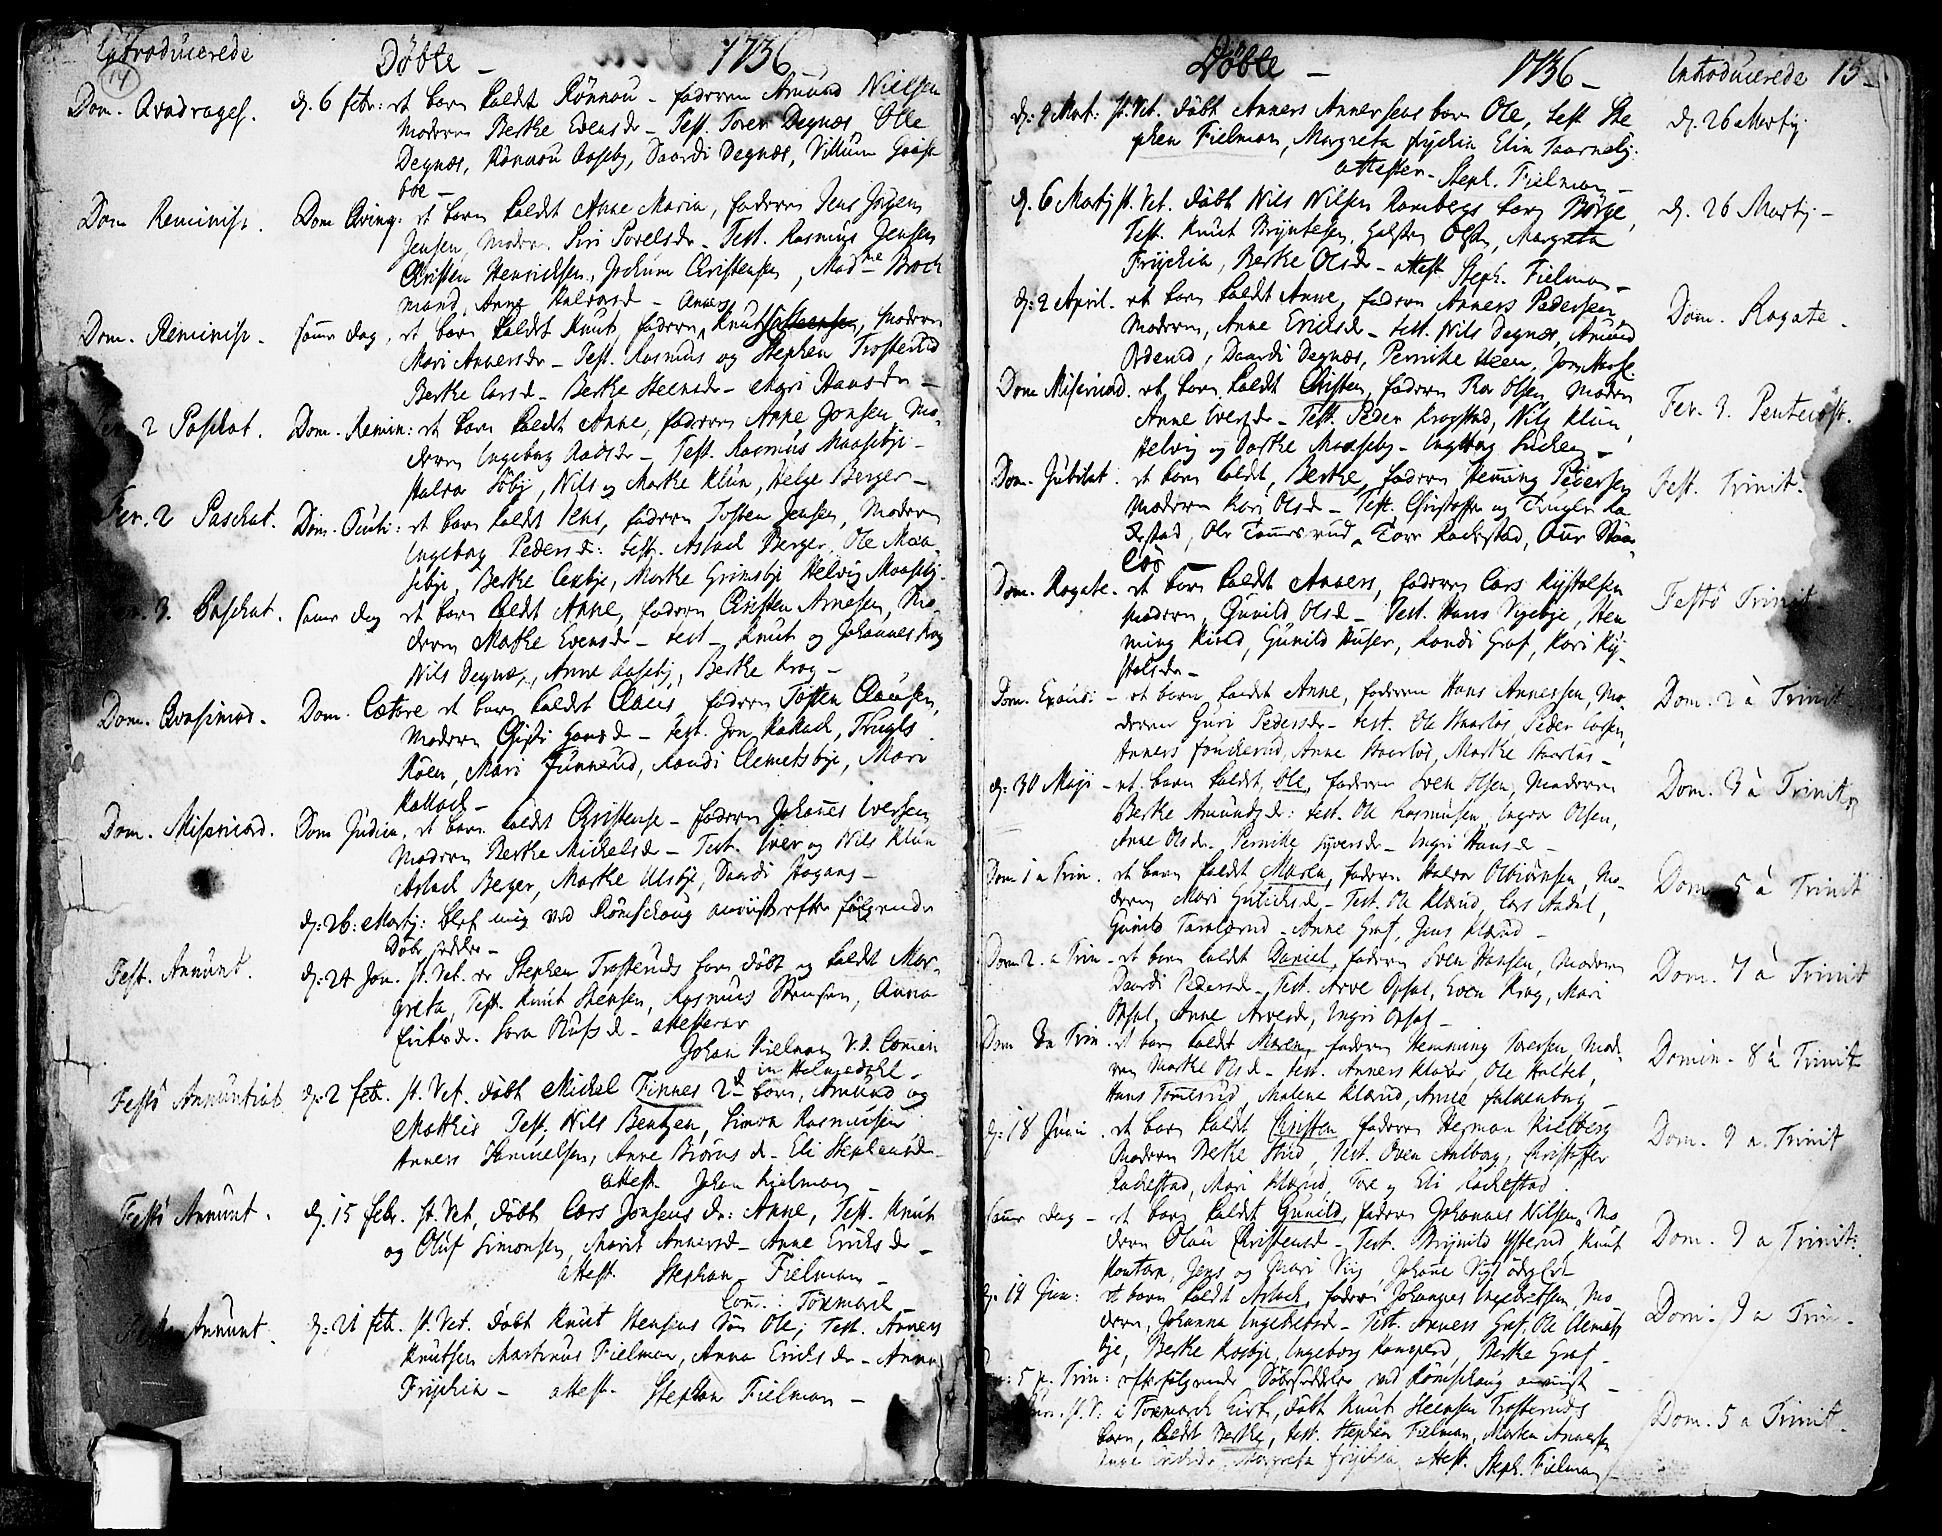 Introducerede Döbte - 1736
14
Dom. Qvadrages. d. 6 febr: et barn kaldt Rönnou - faderen Amund Nielsen
Moderen Berthe Evensdr - Test. Tore Degnæs, Ole
Degnæs, Rönnou Aaseby, Daardi Degnæs, Villum Gaase
böe -
Dom Reminisc. Dom Qvinq: et barn kaldt Anne Maria, faderen Jens Jörgen
Jensen, Moderen Siri Povelsdr - Test. Rasmus Jensen
Christen Henrichsen, Jochum Christensen, Madme Brock
mand, Anne Halvorsd -
Dom. Reminisc. samme dag, et barn kaldt Knut, faderen Anners Knuts, Moderen
Mari Annersdr - Test. Rasmus og Stephen Trosterud
Berthe Larsd - Berthe Steensdr - Mari Hansdr -
Fer. 2 Paschat. Dom. Remin: et barn kaldt Anne, faderen Arne Jonsen, Mo-
deren Ingeborg - Test. Rasmus Maasebye -
Halvor Söby, Nils og Marthe Klun, Helge Berger -
Fer. 2 Paschat. Dom. Oculi: et barn kaldt Jens, faderen Tosten Jensen, Moderen
Ingeborg Pedersd: test. Aslach Berger, Ole Maa-
sebye, Berthe Lexbye, Marthe Grimsbye Helvig Maaseby.
Fer. 3. Paschat. samme dag et barn kaldt Anne, faderen Christen Arnesen, Mo-
deren Marthe Evensdr - test - Knut og Johannes Krog
Nils Degnæs, Anne Aaseby, Berthe Krog -
Dom. Qvasimod. Dom. Lætare et barn kaldt Claus, faderen Tosten Clausen,
Moderen Hansd - Test. Jon Kallach, Truels
Röen, Mari Funnerud, Randi Clemetsbye, Mari
Kallach -
Dom. Misericord. Dom Judica, et barn kaldt Christense - faderen Johanes Iversen
Moderen Berthe Michelsdr - Test. Iver og Nils Klun
Aslach Berger, Marthe Ulsbye, Daardi Hagans -
d: 26: Martij: blef mig ved Römschoug anviist efterfölgende
Döbesedler -
Fest. Annunt. d: 24 Jan. st. Vet. er Stephen Trosteruds barn döbt og kaldt Mar-
greta, Test. Knut Stensen, Rasmus Stensen, Anna
Ericksdr. Sara Olufsd - attesterer
Johan Kielman V.D. Comin
in Holmedahl -
Festo Annuntiat. d: 2 febr. st. Vet. döbt Mickel Finnes 2de börn, Amund og
Mathis Test. Nils Bentzen, Simon Rasmusen
Anners Samuelsen, Anne Biörns d - Eli Stephensdr -
attest. Johan Kielman -
Festo Annunt. d. 15 febr. st. Vet, döbt Lars Jonsens dr: Anne, Test. Knut
og Oluf Simonsen, Marit Annersd - Anne Ericks dr -
attest. Stephan Fielman -
Com: i Töxmarck -
Festo Annunt. d: 21 febr. st. Vet. döbt Knut Stensens Sön Ole; Test. Anners
Knutsen Martinus Fielman, Anna Ericks dr - Anna
Fryckia - attest. Stephan Fielman -
Döbte - 1736 - Introducerede 15
d: 9 Mart: st. Vet. döbt Anners Annersens barn Ole, test Ste
phen Fielman, Margreta fryckia Elin Taarneby.
attester - Steph. Fielman -
d. 26 Martij.
d. 6 Martij st. Vet. döbt Nils Nilsen Rambergs barn Börge,
Test. Knut Bryntesen, Halsten Olsen, Margreta
Fryckia, Berthe Olsdr - attest Steph. Fielman -
d. 26 Martij -
d: 2 April. et barn kaldt Anne, faderen Anners Pedersen
Moderen, Anne Ericksdr - test. Nils Degnæs, Amund
Öderud, Daardi Degnæs, Pernike Ueen, Jon Mosse
Dom. Rogate.
Dom Misericord. et barn kaldt Christen, faderen Roer Olsen Moderen
Anne Iversdr - Test. Peder Krogstad, Nils Klun,
Helvig og Dorthe Maaseby - Ingeborg -
Fer. 3. Pentecost.
Dom. Jubilat. et barn kaldt, Berthe, faderen Heming Pedersen
Moderen Kari Olsd - Test. Christoffer og Truels Ra
destad, Ole Tomesrud, Tore Rackestad, Aure Staa-
lös
Fest. Trinit.
Dom. Rogate. et barn kaldt Anners, faderen Lars Kystolsen
Moderen, Gunild Olsd - Test. Hans Nyebye, Hen
ming Kiud, Gunild Huser, Randi Graf, Kari Ky-
stolsdr -
Festo Trinit -
Dom. Exaudi: - et barn kaldt Anne, faderen Hans Annersen, Mo-
deren Guri Pedersdr - test. Ole Skarlös, Peder Larsen,
Anners Funderud, Anne Skarlös, Marthe Skarlös -
Dom. 2 à Trinit
d: 30 Maji - et barn kaldt, Ole, faderen Sven Olsen, Moderen
Berthe Amundsdr: test. Ole Rasmusen, Ingvor Olsen,
Anne Olsdr. Pernike Syversdr - Ingri Hansdr -
Dom. 3 à Trinit
Dom 1 a Trin. et barn kaldt Maria, faderen Halvor Olbiörnsen, Mo-
deren Mari Gulichsdr - Test. Ole Klærud, Lars Aadal,
Gunild Taralsrud - Anne Graf, Jens Klærud -
Dom. 5 à Trinit
Dom 2. a Trin - et barn kaldt Daniel, faderen Sven Hansen, Moderen
Daardi Pedersdr - Test. Arve Opsal, Even Krog, Mari
Opsal, Anne Arvesdr, Ingri Opsal -
Dom. 7 à Trinit
Dom 3 a Trin. et barn kaldt Maren, faderen Hemming Iversen, Mode-
ren Marthe Olsd - test. Anners Klöver, Ole Holtet,
Hans Tomesrud, Malene Klærud, Anne falkenborg -
Domin. 8 à Trinit
d: 18 Juni. et barn kaldt Christen, faderen Herman Kielberg
Moderen Berthe Stud, Test. Sven Aulborg, Christoffer
Rackestad, Mari Klærud, Tore og Eli Rackestad.
Dom. 9 a. Trinit
samme dag - et barn kaldt Gunild, faderen Johannes Nilsen, Mo
deren Olau Christensd - Test. Brynild Ysterud, Knut
Kontorp, Jens og Mari Viig, Johanne
Dom. 9 a Trinit:
d. 19 Jun: et barn kaldt Aslack, faderen Johannes Ingebretsen, Mo
deren, Johanna Ingebretsdr - Test. Anners Graf, Ole Clemets
bye, Berthe Kosbye, Ingeborg Kamperud, Berthe Graf -
Dom. 9 a Trin -
Dom: 5 p. Trin: efterfölgende Döbesedeler ved Römschoug anviist -
st. V: i Töxmarck Kirke, döbt Knut Steensen Trosteruds
barn, kaldt Berthe, test. Stephen Fielman, Morten Annersen
Inge Ericksdr, Margreta fryckia, attest. Steph. Fielman -
Dom. 5 a Trinit.